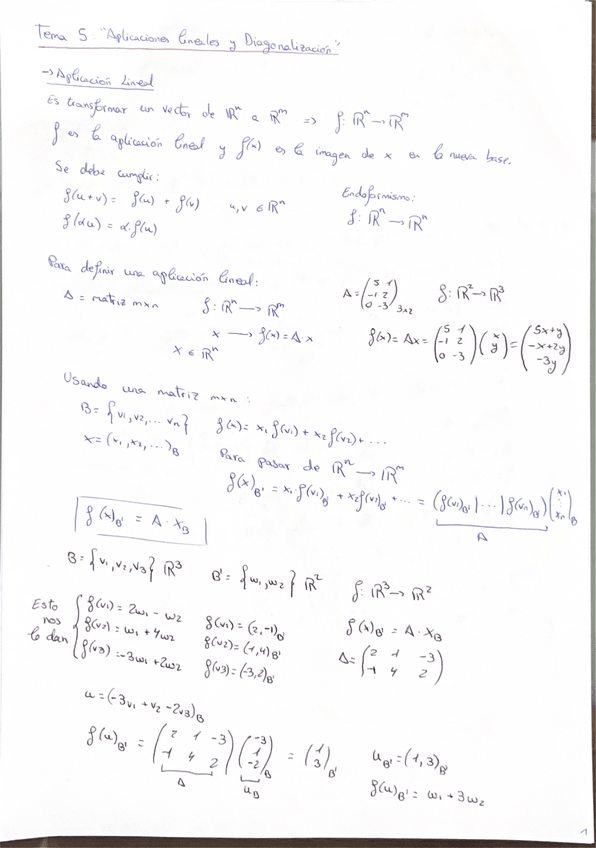 Tema 5 "Aplicaciones lineales y Diagonalización"
→ Aplicación Lineal
Es transformar un vector de ℝⁿ a ℝᵐ ⇒ f: ℝⁿ → ℝᵐ
f es la aplicación lineal y f(x) es la imagen de x en la nueva base.
Se debe cumplir:
f(u+v) = f(u) + f(v) u,v ∈ ℝⁿ
f(αu) = α·f(u)
Endoformismo:
f: ℝⁿ → ℝⁿ
Para definir una aplicación lineal:
A = matriz mxn f: ℝⁿ → ℝᵐ
x → f(x) = A·x
x ∈ ℝⁿ
A = (5 1 / -1 2 / 0 -3)3x2 f: ℝ² → ℝ³
f(x) = Ax = (5 1 / -1 2 / 0 -3)(x / y) = (5x+y / -x+2y / -3y)
Usando una matriz mxn:
B = {v1, v2, ... vn} f(x) = x1 f(v1) + x2 f(v2) + ...
x = (x1, x2, ...)B
Para pasar de ℝⁿ → ℝᵐ
f(x)B' = x1·f(v1)B' + x2 f(v2)B' + ... = (f(v1)B' | ... | f(vn)B')(x1 ⋮ xn)B
A
f(x)B' = A·xB
B = {v1, v2, v3} ℝ³ B' = {w1, w2} ℝ² f: ℝ³ → ℝ²
Esto nos lo dan
f(v1) = 2w1 - w2 f(v1) = (2,-1)B'
f(v2) = w1 + 4w2 f(v2) = (1,4)B'
f(v3) = -3w1 + 2w2 f(v3) = (-3,2)B'
f(x)B' = A·xB
A = (2 1 -3 / -1 4 2)
u = (-3v1 + v2 - 2v3)B
f(u)B' = (2 1 -3 / -1 4 2)(-3 / 1 / -2)B = (1 / 3)B'
A uB
uB' = (1,3)B'
f(u)B' = w1 + 3w2
1